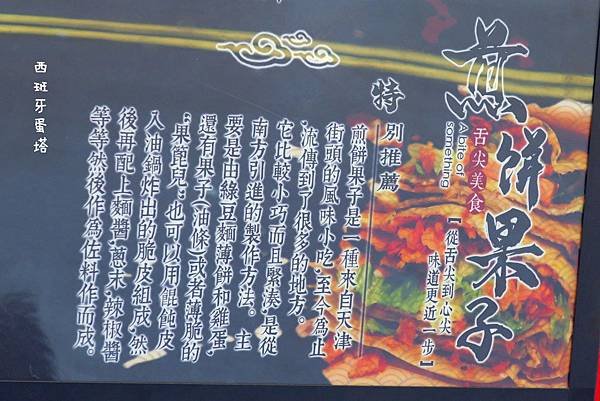 煎餅果子
A bite of
something
舌尖美食
【從舌尖到心尖
味道更近一步】
特別推薦
煎餅果子是一種來自天津
街頭的風味小吃,至今為止
,流傳到了很多的地方。
它比較小巧而且緊湊,是從
南方引進的製作方法。 主
要是由綠豆麵薄餅和雞蛋,
還有果子(油條)或者薄脆的
“果箆兒”,也可以用餛飩皮
入油鍋炸出的脆皮組成,然
後再配上麵醬,蔥末,辣椒醬
等等然後作為佐料作而成。
西班牙蛋塔